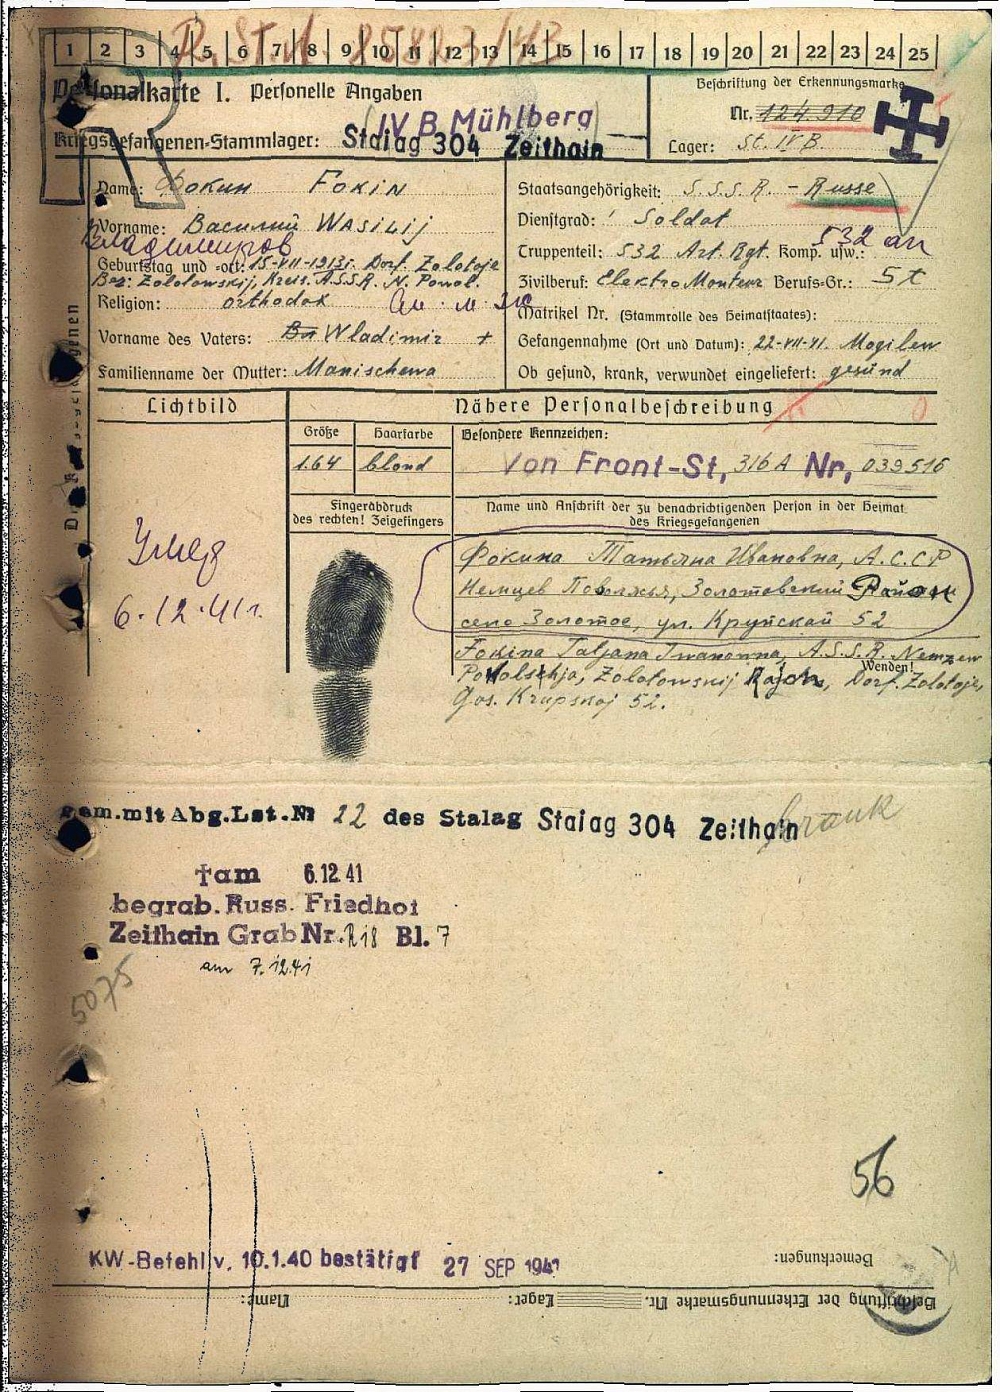 R.St.A. 85823/43
1 2 3 4 5 6 7 8 9 10 11 12 13 14 15 16 17 18 19 20 21 22 23 24 25
Personalkarte I. Personelle Angaben
Beschriftung der Erkennungsmarke
(IV B Mühlberg)
Nr. 124910
Kriegsgefangenen-Stammlager: Stalag 304 Zeithain
Lager: St. IV B
Name: Фокин FOKIN
Vorname: Василий WASILIJ
Владимиров
Geburtstag und -ort: 15-VII-1913r. Dorf. Zolotoje
Bez: Zolotowskij, Kreis. A.S.S.R. N. Powol.
Religion: orthodox
Vorname des Vaters: Wladimir +
Familienname der Mutter: Manischewa
Staatsangehörigkeit: S.S.S.R. - Russe
Dienstgrad: Soldat
532 ап
Truppenteil: 532 Art. Rgt. Komp. usw.:
Zivilberuf: ElektroMonteur Berufs-Gr.: 5t
Matrikel Nr. (Stammrolle des Heimatstaates):
Gefangennahme (Ort und Datum): 22-VII-41. Mogilew
Ob gesund, krank, verwundet eingeliefert: gesund
Des Kriegsgefangenen
Lichtbild
Nähere Personalbeschreibung
Größe Haarfarbe Besondere Kennzeichen:
1.64 blond Von Front-St, 316A Nr, 039516
Fingerabdruck
des rechten! Zeigefingers
Name und Anschrift der zu benachrichtigenden Person in der Heimat
des Kriegsgefangenen
Умер
6.12.41г.
Фокина Татьяна Ивановна, А.С.С.Р
Немцев Поволжья, Золотовский Район
село Золотое, ул. Крупской 52
Fokina Tatjana Iwanowna, A.S.S.R. Nemzew
Wenden!
Powolschja, Zolotowskij Rajon, Dorf. Zolotoje,
Gos. Krupskoj 52.
gem. mit Abg. Lst. Nr 22 des Stalag Stalag 304 Zeithain
krank
†am 6.12.41
begrab. Russ. Friedhof
Zeithain Grab Nr. R18 Bl. 7
am 7.12.41
5075
56
KW-Befehl v. 10.1.40 bestätigt 27 SEP 1941
Bemerkungen:
Name: Lager: Beschriftung der Erkennungsmarke Nr.